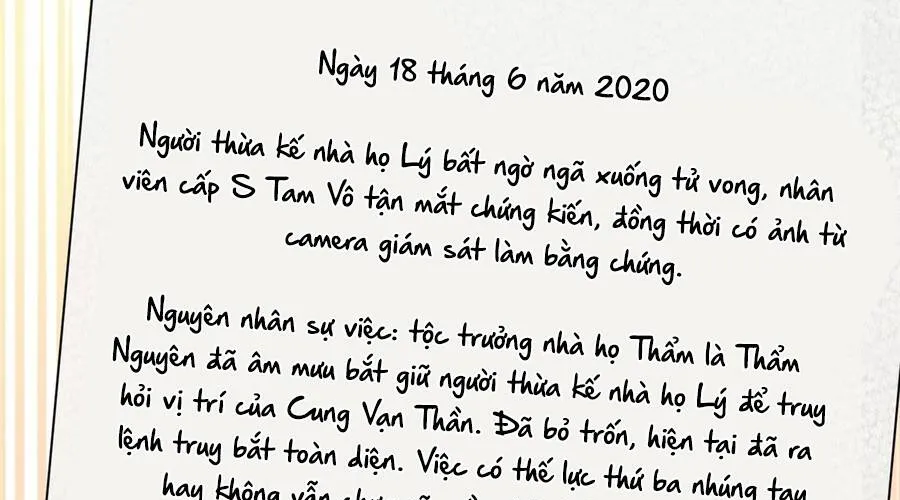 Ngày 18 tháng 6 năm 2020
Người thừa kế nhà họ Lý bất ngờ ngã xuống tử vong, nhân
viên cấp S Tam Vô tận mắt chứng kiến, đồng thời có ảnh từ
camera giám sát làm bằng chứng.
Nguyên nhân sự việc: tộc trưởng nhà họ Thẩm là Thẩm
Nguyên đã âm mưu bắt giữ người thừa kế nhà họ Lý để truy
hỏi vị trí của Cung Vạn Thần. Đã bỏ trốn, hiện tại đã ra
lệnh truy bắt toàn diện. Việc có thế lực thứ ba nhúng tay
hay không vẫn